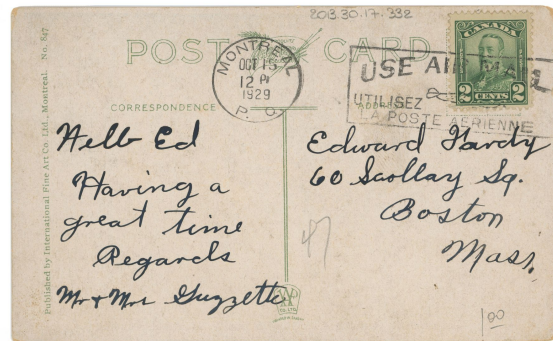 2013.30.17.332
POST CARD
CANADA
2 CENTS 2
MONTREAL
OCT 15
12 PM
1929
P. Q.
USE AIR MAIL
UTILISEZ
LA POSTE AERIENNE
CORRESPONDENCE
ADDRESS
Published by International Fine Art Co. Ltd., Montreal. No. 847
Hello Ed
Having a
great time
Regards
Mr & Mrs Guzzette
Edward Hardy
60 Scollay Sq.
Boston
Mass.
47
100